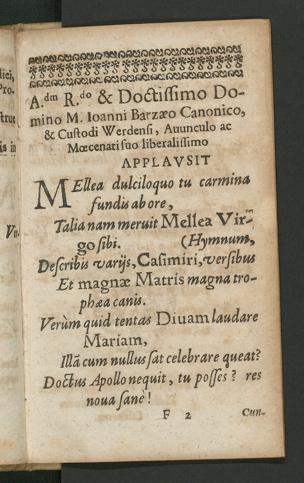 A.dm R.do & Doctissimo Do-
mino M. Ioanni Barzæo Canonico,
& Custodi Werdensi, Avunculo ac
Mœcenati suo liberalissimo
APPLAVSIT
MEllea dulciloquo tu carmina
fundis ab ore,
Talia nam meruit Mellea Vir-
go sibi. (Hymnum,
Describis varijs, Casimiri, versibus
Et magnæ Matris magna tro-
phæa canis.
Verùm quid tentas Divam laudare
Mariam,
Illã cum nullus sat celebrare queat?
Doctus Apollo nequit, tu posses? res
nova sanè!
F 2 Cun-